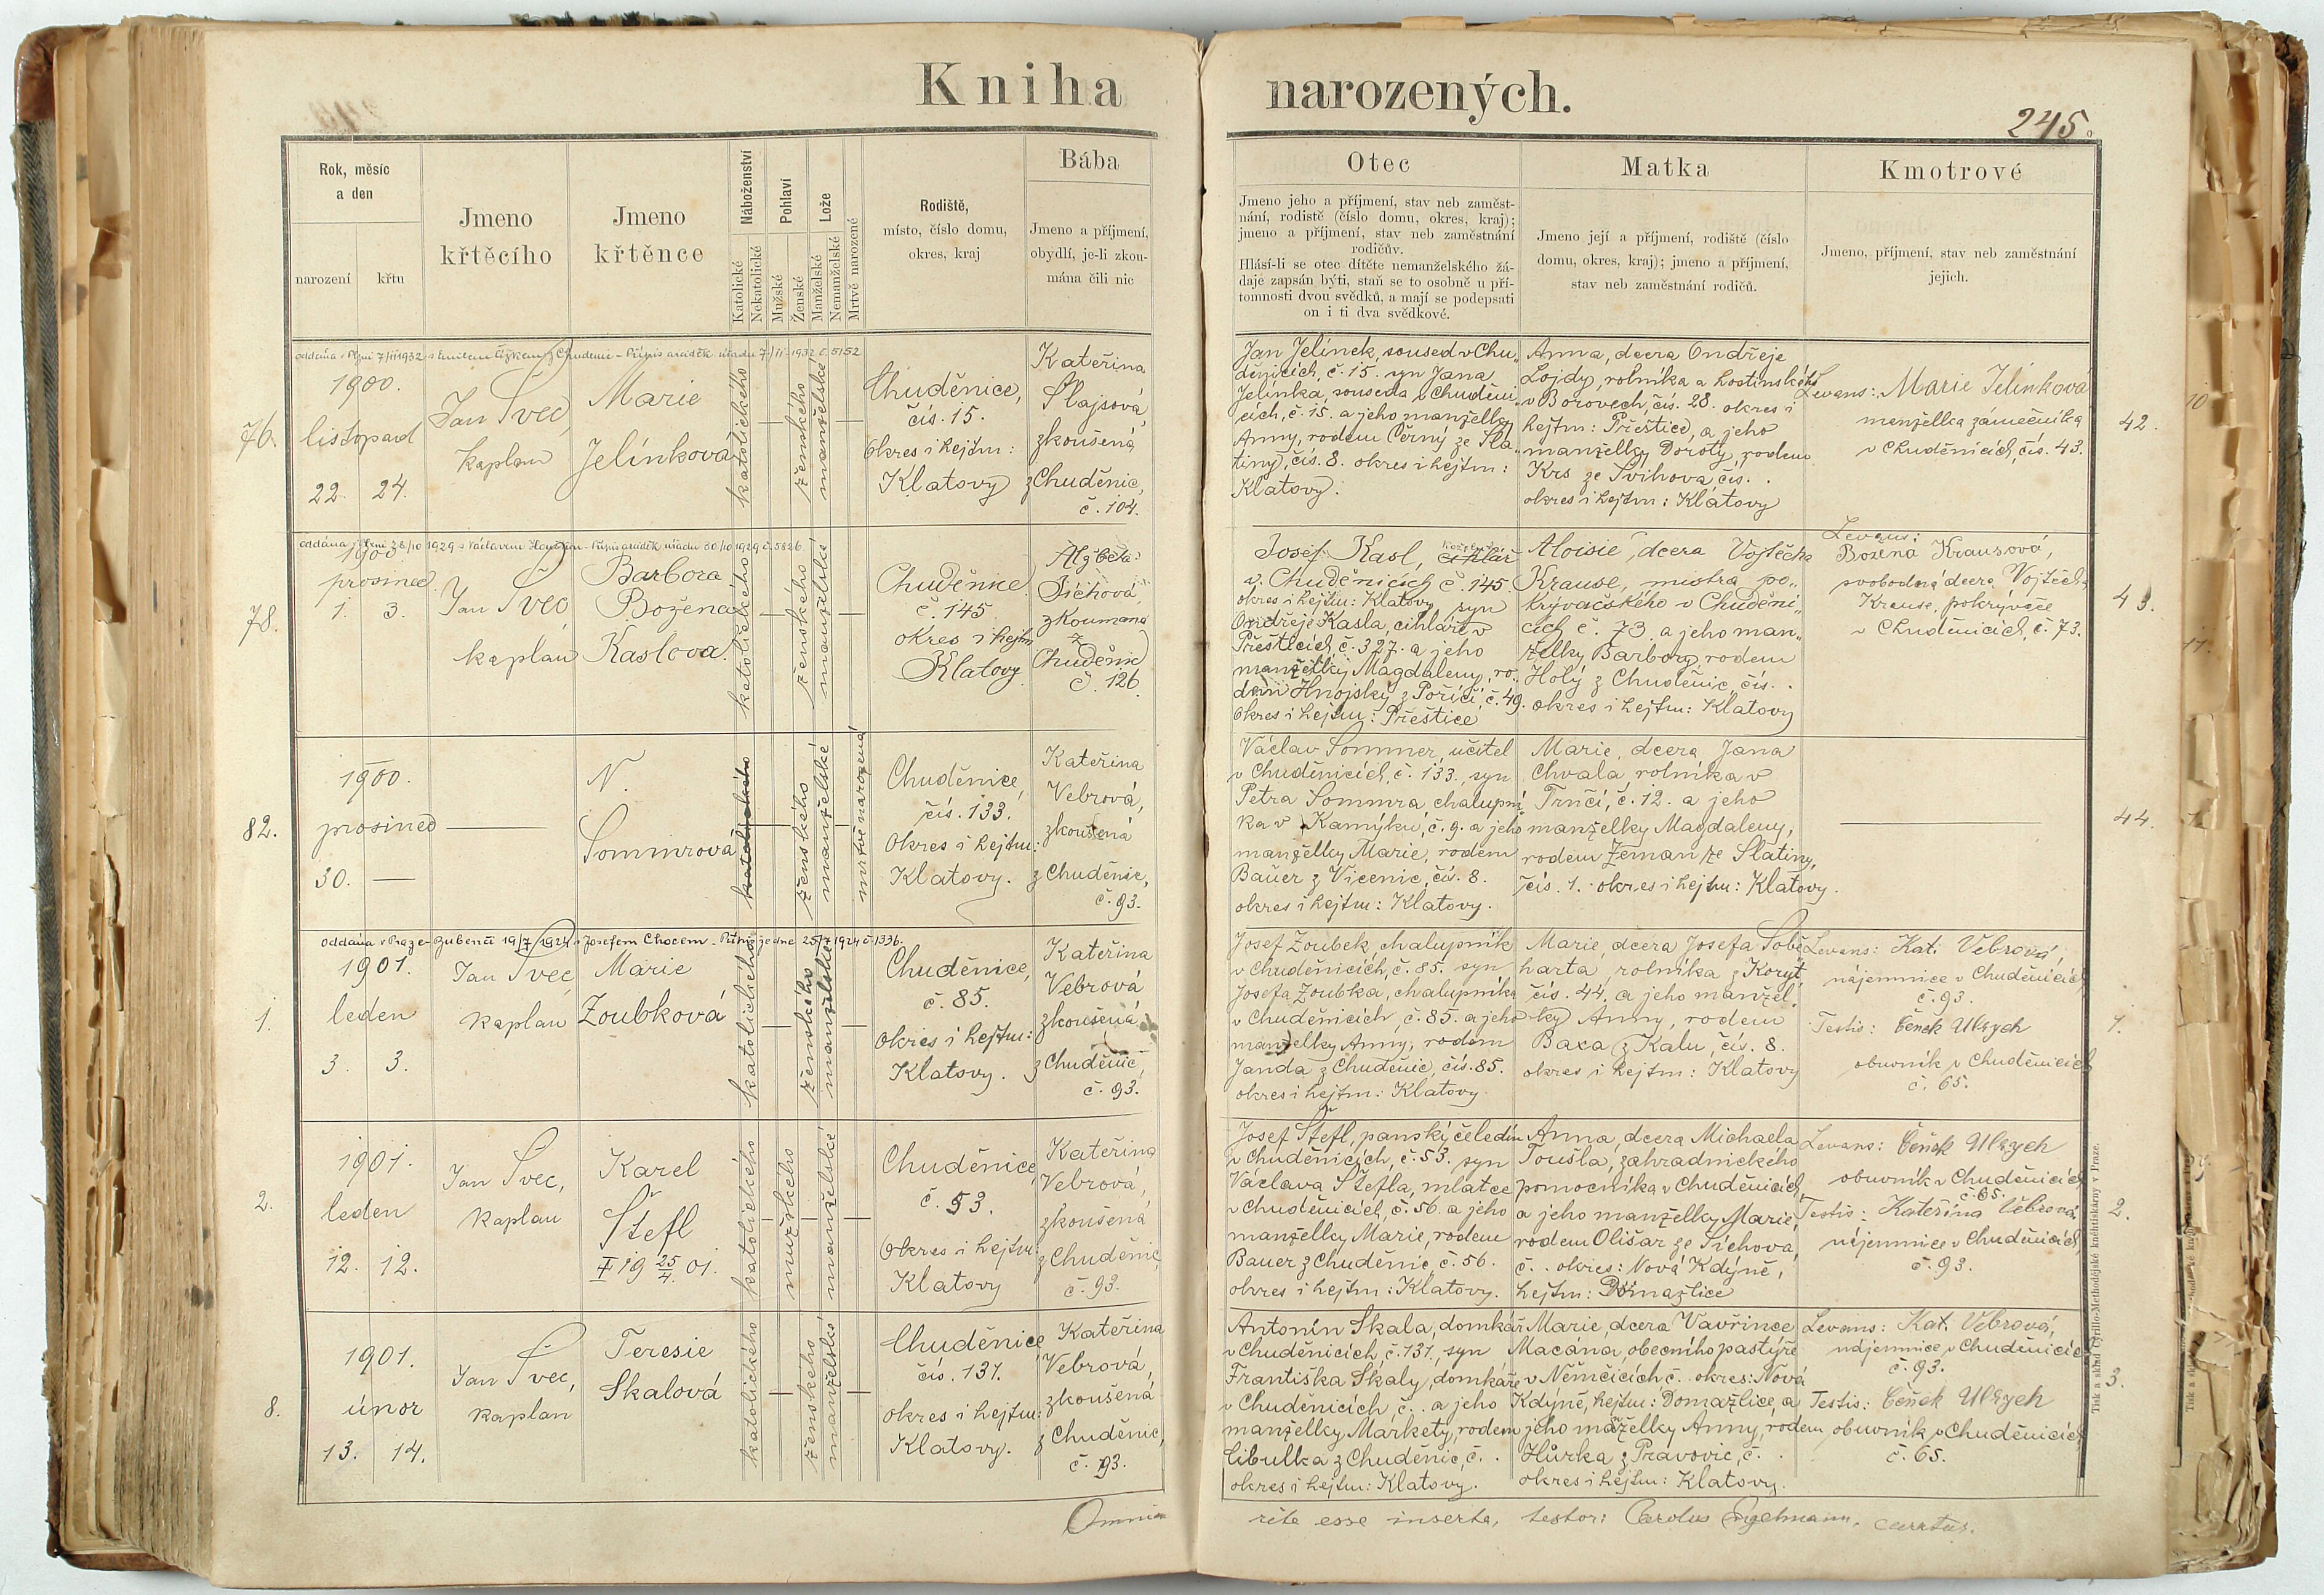 Kniha narozených.
245.
Rok, měsíc
a den
narození
křtu
Jmeno
křtěcího
Jmeno
křtěnce
Náboženství
Katolické
Nekatolické
Pohlaví
Mužské
Ženské
Lože
Manželské
Nemanželské
Mrtvě narozené
Rodiště,
místo, číslo domu,
okres, kraj
Bába
Jmeno a příjmení,
obydlí, je-li zkou-
mána čili nic
Otec
Jmeno jeho a příjmení, stav neb zaměst-
nání, rodiště (číslo domu, okres, kraj);
jmeno a příjmení, stav neb zaměstnání
rodičův.
Hlásí-li se otec dítěte nemanželského žá-
daje zapsán býti, staň se to osobně u pří-
tomnosti dvou svědků, a mají se podepsati
on i ti dva svědkové.
Matka
Jmeno její a příjmení, rodiště (číslo
domu, okres, kraj); jmeno a příjmení,
stav neb zaměstnání rodičů.
Kmotrové
Jmeno, příjmení, stav neb zaměstnání
jejich.
76.
oddána v Plzni 7/II 1932 s Emilem Čížkem z Chudenic - Přípis arciděk. úřadu 7/II 1932 č. 5152
1900.
listopad
22. 24.
Jan Švec,
kaplan
Marie
Jelínková
katolického
ženského
manželské
Chuděnice,
čís. 15.
okres i hejtm:
Klatovy
Kateřina
Šlajsová,
zkoušená
z Chuděnic,
č. 104.
Jan Jelínek, soused v Chu„
děnicích, č. 15. syn Jana
Jelínka, souseda v Chuděni„
cích, č. 15. a jeho manželky
Anny, rodem Černý ze Sla„
tiny, čís. 8. okres i hejtm:
Klatovy.
Anna, dcera Ondřeje
Lojdy, rolníka a hostinského
v Borovech, čís. 28. okres i
hejtm: Přeštice, a jeho
manželky Doroty, rodem
Krs ze Švihova, čís. .
okres i hejtm: Klatovy
Levans: Marie Jelínková
manželka zámečníka
v Chuděnicích, čís. 43.
42.
78.
oddána v Plzni 28/10 1929 s Václavem - Přípis arciděk. úřadu 30/10 1929 č. 5826
1900
prosinec
1. 3.
Jan Švec,
kaplan
Barbora
Božena
Kaslova.
katolického
ženského
manželské
Chuděnice
č. 145
okres i hejtm
Klatovy
Alžběta
Šichová,
zkoumaná
z
Chuděnic
č. 126.
Josef Kasl, cihlář
v Chuděnicích č. 145
okres i hejtm: Klatovy syn
Ondřeje Kasla, cihláře v
Přešticích, č. 327. a jeho
manželky Magdaleny, ro„
dem Hnojský z Poříčí, č. 49.
okres i hejtm: Přeštice
Aloisie, dcera Vojtěcha
Krause, mistra po„
krývačského v Chuděni„
cích č. 73. a jeho man„
želky Barbory, rodem
Holý z Chuděnic, čís. .
okres i hejtm: Klatovy
Levans:
Božena Krausová,
svobodná dcera Vojtěch.
Krause, pokrývače
v Chuděnicích, č. 73.
43.
82.
1900.
prosinec
30.
N.
Sommrová
katolického
ženského
manželské
mrtvě narozená
Chuděnice,
čís. 133.
okres i hejtm:
Klatovy.
Kateřina
Vebrová,
zkoušená
z Chuděnic,
č. 93.
Václav Sommer, učitel
v Chuděnicích, č. 133., syn
Petra Sommra, chalupní„
ka v Kamýku, č. 9. a jeho
manželky Marie, rodem
Bauer z Vícenic, čís. 8.
okres i hejtm: Klatovy.
Marie, dcera Jana
Chvala rolníka v
Trnčí, č. 12. a jeho
manželky Magdaleny,
rodem Zeman ze Slatiny,
čís. 1. okres i hejtm: Klatovy.
44.
1.
Oddána v Praze-Bubenči 19/7 1924 s Josefem Chocem - 25/7 1924 č. 1336.
1901.
leden
3. 3.
Jan Švec
kaplan
Marie
Zoubková
katolického
ženského
manželské
Chuděnice,
č. 85.
okres i hejtm:
Klatovy.
Kateřina
Vebrová
zkoušená,
z Chuděnic,
č. 93.
Josef Zoubek, chalupník
v Chuděnicích, č. 85. syn
Josefa Zoubka, chalupníka
v Chuděnicích, č. 85. a jeho
manželky Anny, rodem
Janda z Chuděnic, čís. 85.
okres i hejtm: Klatovy.
Marie, dcera Josefa Sobě„
harta, rolníka z Koryt
čís. 44. a jeho manžel„
ky Anny, rodem
Baxa z Kalu, čís. 8.
okres i hejtm: Klatovy
Levans: Kat. Vebrová,
nájemnice v Chuděnicích,
č. 93.
Testis: Čeněk Ulrych
obuvník v Chuděnicích
č. 65.
1.
2.
1901.
leden
12. 12.
Jan Švec,
kaplan
Karel
Štefl
19 25/4. 01.
katolického
mužského
manželské
Chuděnice,
č. 53.
okres i hejtm:
Klatovy
Kateřina
Vebrová,
zkoušená
z Chuděnic,
č. 93.
Josef Štefl, panský čeledín
v Chuděnicích, č. 53. syn
Václava Štefla, mlatce
v Chuděnicích, č. 56. a jeho
manželky Marie, rodem
Bauer z Chuděnic, č. 56.
okres i hejtm: Klatovy.
Anna, dcera Michaela
Toušla, zahradnického
pomocníka v Chuděnicích,
a jeho manželky Marie,
rodem Olišar ze Síchova,
č. . okres: Nová Kdýně,
hejtm: Domažlice
Levans: Čeněk Ulrych
obuvník v Chuděnicích,
č. 65.
Testis: Kateřina Vebrová
nájemnice v Chuděnicích,
č. 93.
2.
8.
1901.
únor
13. 14.
Jan Švec,
kaplan
Teresie
Skalová
katolického
ženského
manželské
Chuděnice
čís. 131.
okres i hejtm:
Klatovy.
Kateřina
Vebrová,
zkoušená
z Chuděnic,
č. 93.
Antonín Skala, domkář
v Chuděnicích, č. 131., syn
Františka Skaly, domkáře
v Chuděnicích, č. . a jeho
manželky Markety, rodem
Cibulka z Chuděnic, č. .
okres i hejtm: Klatovy.
Marie, dcera Vavřince
Macána, obecního pastýře
v Němčicích č. . okres: Nová
Kdýně, hejtm: Domažlice, a
jeho manželky Anny, rodem
Hůrka z Pravovic, č. .
okres i hejtm: Klatovy.
Levans: Kat. Vebrová,
nájemnice v Chuděnicích
č. 93.
Testis: Čeněk Ulrych
obuvník v Chuděnicích,
č. 65.
3.
Omnia rite esse inserta, testor: Carolus curatus.
Tisk a sklad Cyrillo-Methodějské knihtiskárny v Praze.